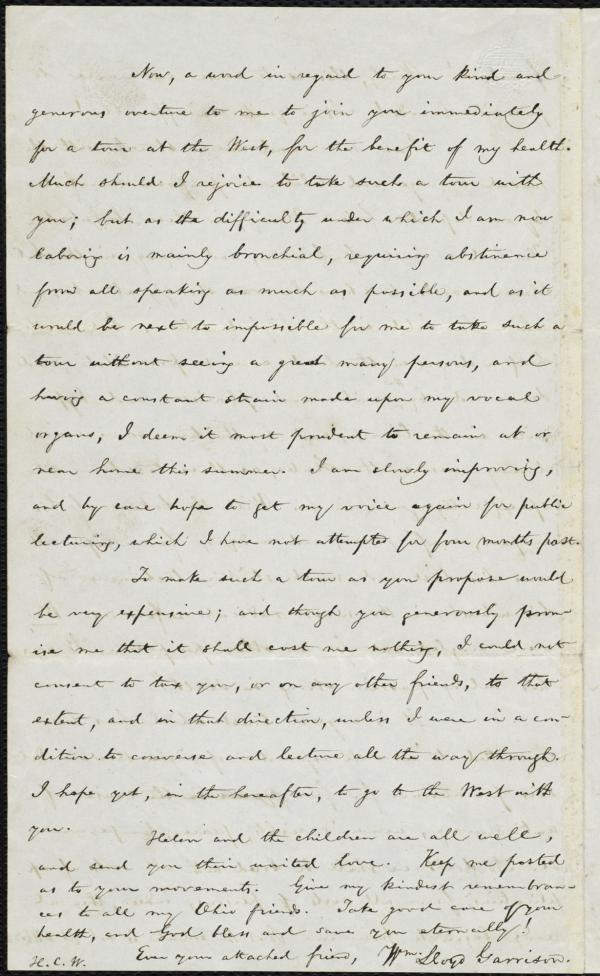 Now, a word in regard to your kind and
generous overture to me to join you immediately
for a tour at the West, for the benefit of my health.
Much should I rejoice to take such a tour with
you; but as the difficulty under which I am now
laboring is mainly bronchial, requiring abstinence
from all speaking as much as possible, and as it
would be next to impossible for me to take such a
tour without seeing a great many persons, and
having a constant strain made upon my vocal
organs, I deem it most prudent to remain at or
near home this summer. I am slowly improving,
and by care hope to get my voice again for public
lecturing, which I have not attempted for four months past.
To make such a tour as you propose would
be very expensive; and though you generously prom-
ise me that it shall cost me nothing, I could not
consent to tax you, or on any other friends, to that
extent, and in that direction, unless I were in a con-
dition to converse and lecture all the way through.
I hope yet, in the hereafter, to go to the West with
you.
Helen and the children are all well,
and send you their united love. Keep me posted
as to your movements. Give my kindest remembran-
ces to all my Ohio friends. Take good care of your
health, and God bless and save you eternally!
Ever your attached friend, Wm. Lloyd Garrison.
H. C. W.